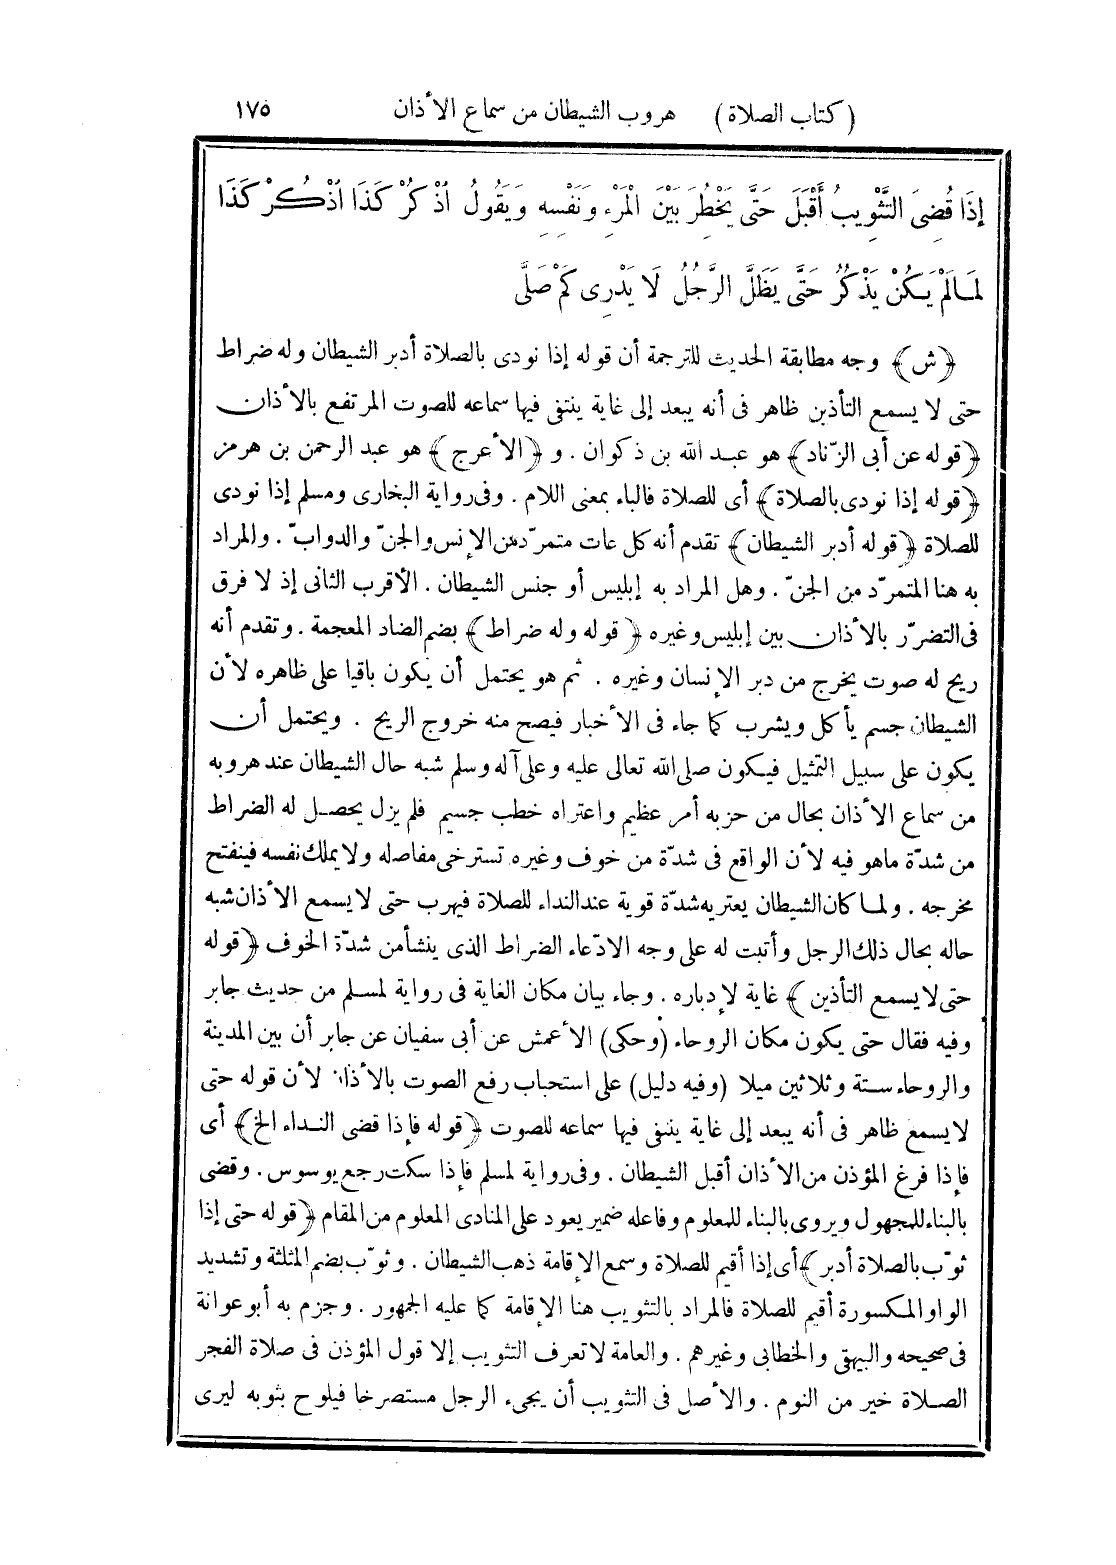 (كتاب الصلاة) هروب الشيطان من سماع الأذان ١٧٥
إِذَا قُضِىَ التَّثْوِيبُ أَقْبَلَ حَتَّى يَخْطُرَ بَيْنَ الْمَرْءِ وَنَفْسِهِ وَيَقُولُ اُذْكُرْ كَذَا اُذْكُرْ كَذَا
لِمَا لَمْ يَكُنْ يَذْكُرُ حَتَّى يَظَلَّ الرَّجُلُ لَا يَدْرِى كَمْ صَلَّى
﴿ش﴾ وجه مطابقة الحديث للترجمة أن قوله إذا نودى بالصلاة أدبر الشيطان وله ضراط
حتى لا يسمع التأذين ظاهر فى أنه يبعد إلى غاية ينتفى فيها سماعه للصوت المرتفع بالأذان
﴿قوله عن أبى الزّناد﴾ هو عبد الله بن ذكوان . و ﴿الأعرج﴾ هو عبد الرحمن بن هرمز
﴿قوله إذا نودى بالصلاة﴾ أى للصلاة فالباء بمعنى اللام . وفى رواية البخارى ومسلم إذا نودى
للصلاة ﴿قوله أدبر الشيطان﴾ تقدم أنه كل عات متمرّد من الإنس والجنّ والدوابّ . والمراد
به هنا المتمرّد من الجنّ . وهل المراد به إبليس أو جنس الشيطان . الأقرب الثانى إذ لا فرق
فى التضرّر بالأذان بين إبليس وغيره ﴿قوله وله ضراط﴾ بضم الضاد المعجمة . وتقدم أنه
ريح له صوت يخرج من دبر الإنسان وغيره . ثم هو يحتمل أن يكون باقيا على ظاهره لأن
الشيطان جسم يأكل ويشرب كما جاء فى الأخبار فيصح منه خروج الريح . ويحتمل أن
يكون على سبيل التمثيل فيكون صلى الله تعالى عليه وعلى آله وسلم شبه حال الشيطان عند هروبه
من سماع الأذان بحال من حزبه أمر عظيم واعتراه خطب جسيم فلم يزل يحصل له الضراط
من شدّة ماهو فيه لأن الواقع فى شدّة من خوف وغيره تسترخى مفاصله ولايملك نفسه فينفتح
مخرجه . ولما كان الشيطان يعتريه شدّة قوية عند النداء للصلاة فيهرب حتى لا يسمع الأذان شبه
حاله بحال ذلك الرجل وأثبت له على وجه الادّعاء الضراط الذى ينشأ من شدّة الخوف ﴿قوله
حتى لا يسمع التأذين﴾ غاية لإدباره . وجاء بيان مكان الغاية فى رواية لمسلم من حديث جابر
وفيه فقال حتى يكون مكان الروحاء (وحكى) الأعمش عن أبى سفيان عن جابر أن بين المدينة
والروحاء ستة وثلاثين ميلا (وفيه دليل) على استحباب رفع الصوت بالأذان لأن قوله حتى
لا يسمع ظاهر فى أنه يبعد إلى غاية ينتفى فيها سماعه للصوت ﴿قوله فإذا قضى النداء الخ﴾ أى
فإذا فرغ المؤذن من الأذان أقبل الشيطان . وفى رواية لمسلم فإذا سكت رجع يوسوس . وقضى
بالبناء للمجهول ويروى بالبناء للمعلوم وفاعله ضمير يعود على المنادى المعلوم من المقام ﴿قوله حتى إذا
ثوّب بالصلاة أدبر﴾ أى إذا أقيم للصلاة وسمع الإقامة ذهب الشيطان . وثوّب بضم المثلثة وتشديد
الواو المكسورة أقيم للصلاة فالمراد بالتثويب هنا الإقامة كما عليه الجمهور . وجزم به أبو عوانة
فى صحيحه والبيهقى والخطابى وغيرهم . والعامة لا تعرف التثويب إلا قول المؤذن فى صلاة الفجر
الصلاة خير من النوم . والأصل فى التثويب أن يجىء الرجل مستصرخا فيلوح بثوبه ليرى